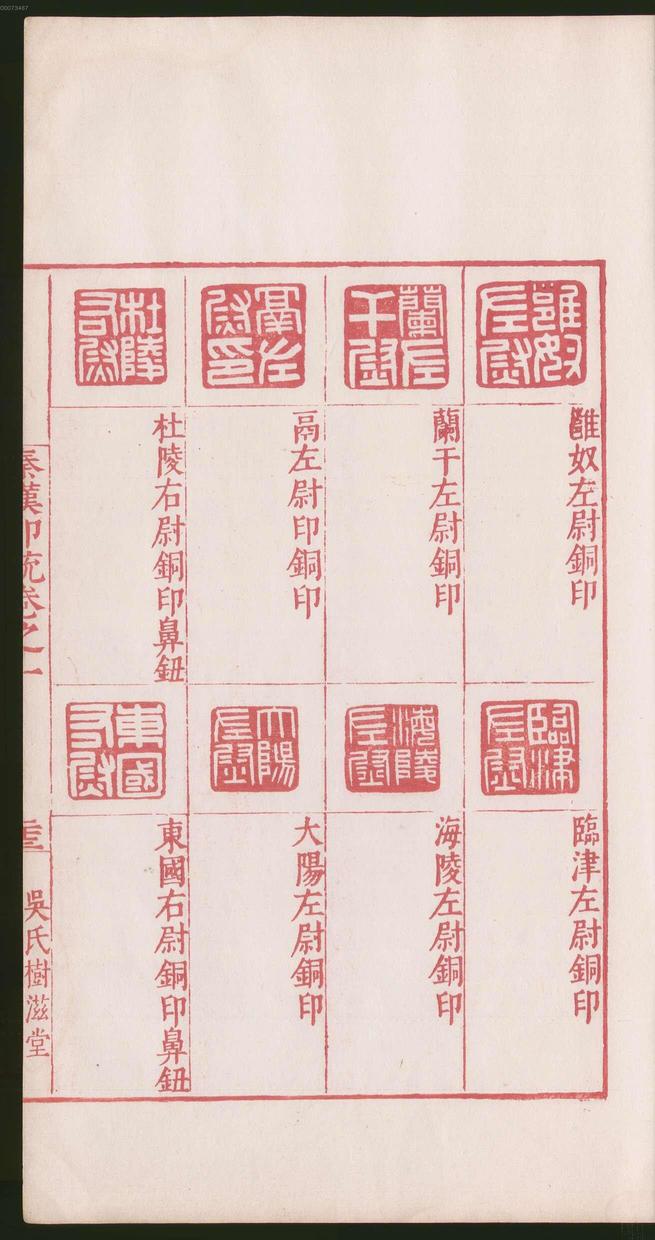 雝奴左尉銅印
蘭干左尉銅印
鬲左尉印銅印
杜陵右尉銅印鼻鈕
臨津左尉銅印
海陵左尉銅印
大陽左尉銅印
東國右尉銅印鼻鈕
秦漢印統卷之一
吳氏樹滋堂
00073487